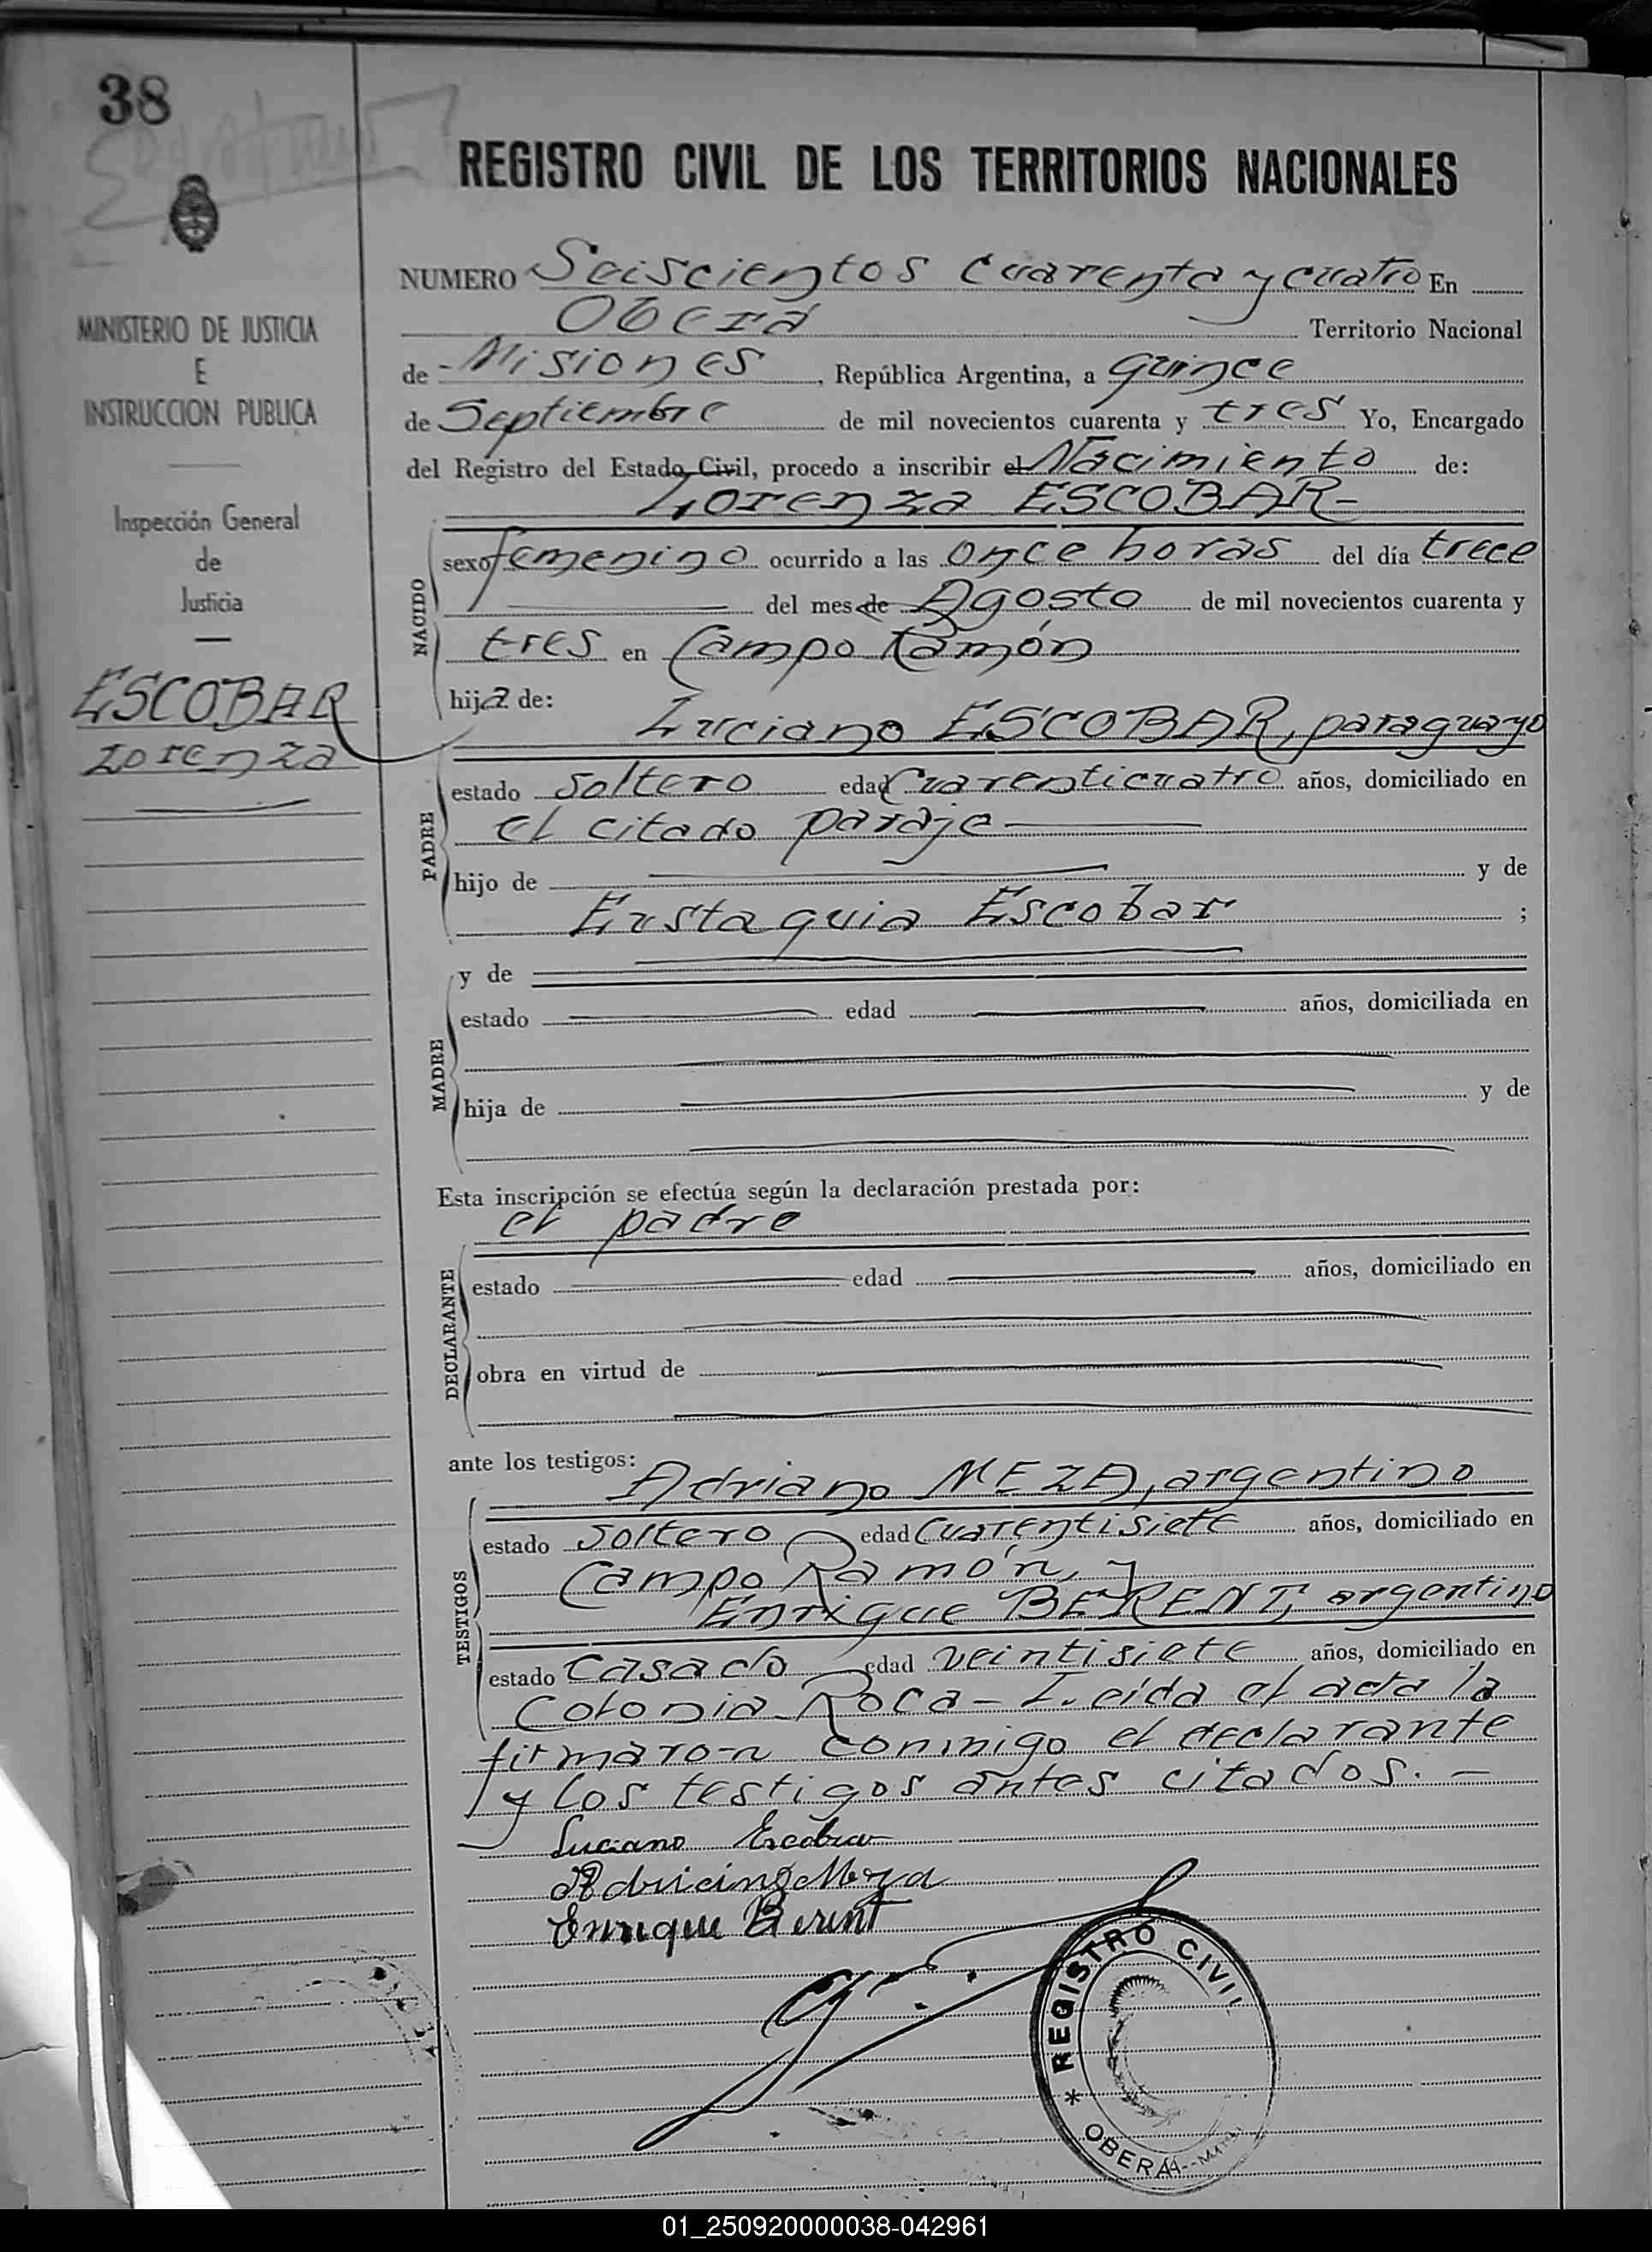 38
REGISTRO CIVIL DE LOS TERRITORIOS NACIONALES
MINISTERIO DE JUSTICIA
E
INSTRUCCION PUBLICA
Inspección General
de
Justicia
ESCOBAR
Lorenza
NUMERO Seiscientos cuarenta y cuatro En
Oberá Territorio Nacional
de Misiones, República Argentina, a quince
de Septiembre de mil novecientos cuarenta y tres Yo, Encargado
del Registro del Estado Civil, procedo a inscribir el Nacimiento de:
Lorenza ESCOBAR-
NACIDO
sexo femenino ocurrido a las once horas del día trece
del mes de Agosto de mil novecientos cuarenta y
tres en Campo Ramón
hija de:
Luciano ESCOBAR, paraguayo
PADRE
estado soltero edad cuarenticuatro años, domiciliado en
el citado paraje
hijo de y de
Eustaquia Escobar ;
MADRE
y de
estado edad años, domiciliada en
hija de y de
Esta inscripción se efectúa según la declaración prestada por:
el padre
DECLARANTE
estado edad años, domiciliado en
obra en virtud de
ante los testigos:
Adriano MEZA, argentino
TESTIGOS
estado soltero edad cuarentisiete años, domiciliado en
Campo Ramón, y
Enrique BERENT, argentino
estado casado edad veintisiete años, domiciliado en
Colonia Roca- Leida el acta la
firmaron conmigo el declarante
y los testigos antes citados.-
Luciano Escobar
Adriano Meza
Enrique Berent
REGISTRO CIVIL
* OBERA
01_250920000038-042961